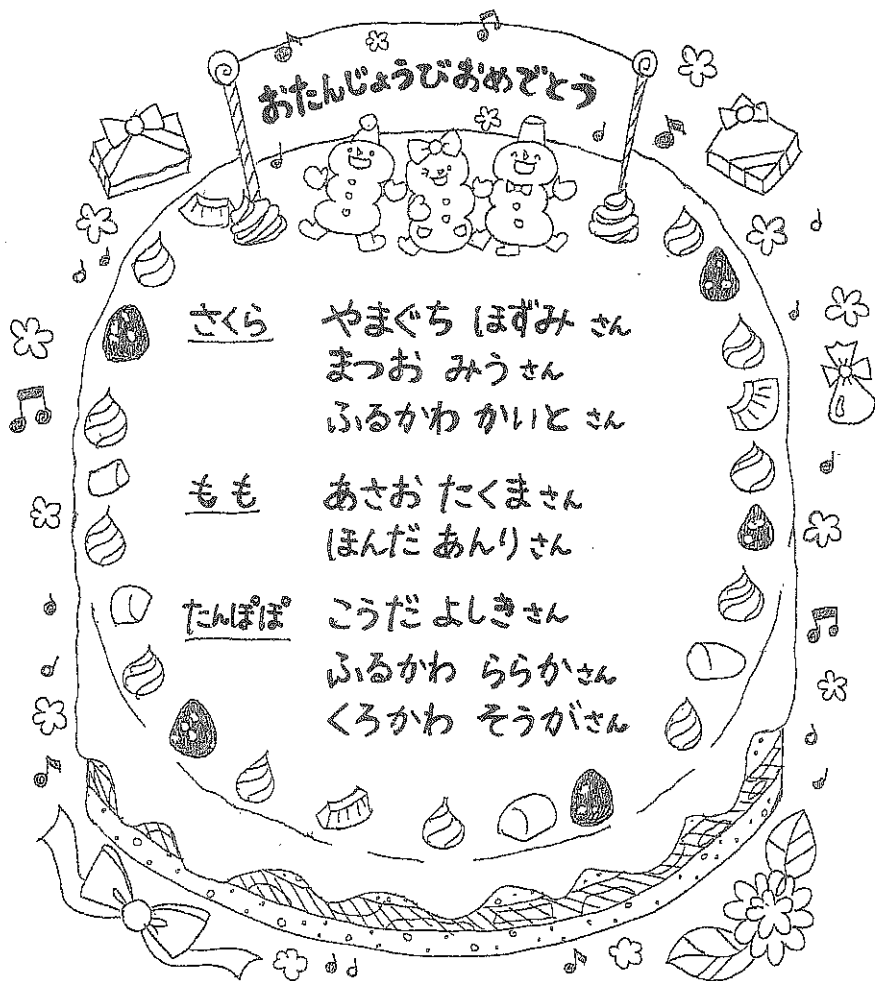 おたんじょうびおめでとう
さくら やまぐち ほずみ さん
まつお みう さん
ふるかわ かいと さん
もも あさお たくま さん
ほんだ あんり さん
たんぽぽ こうだ よしき さん
ふるかわ ららか さん
くろかわ そうが さん